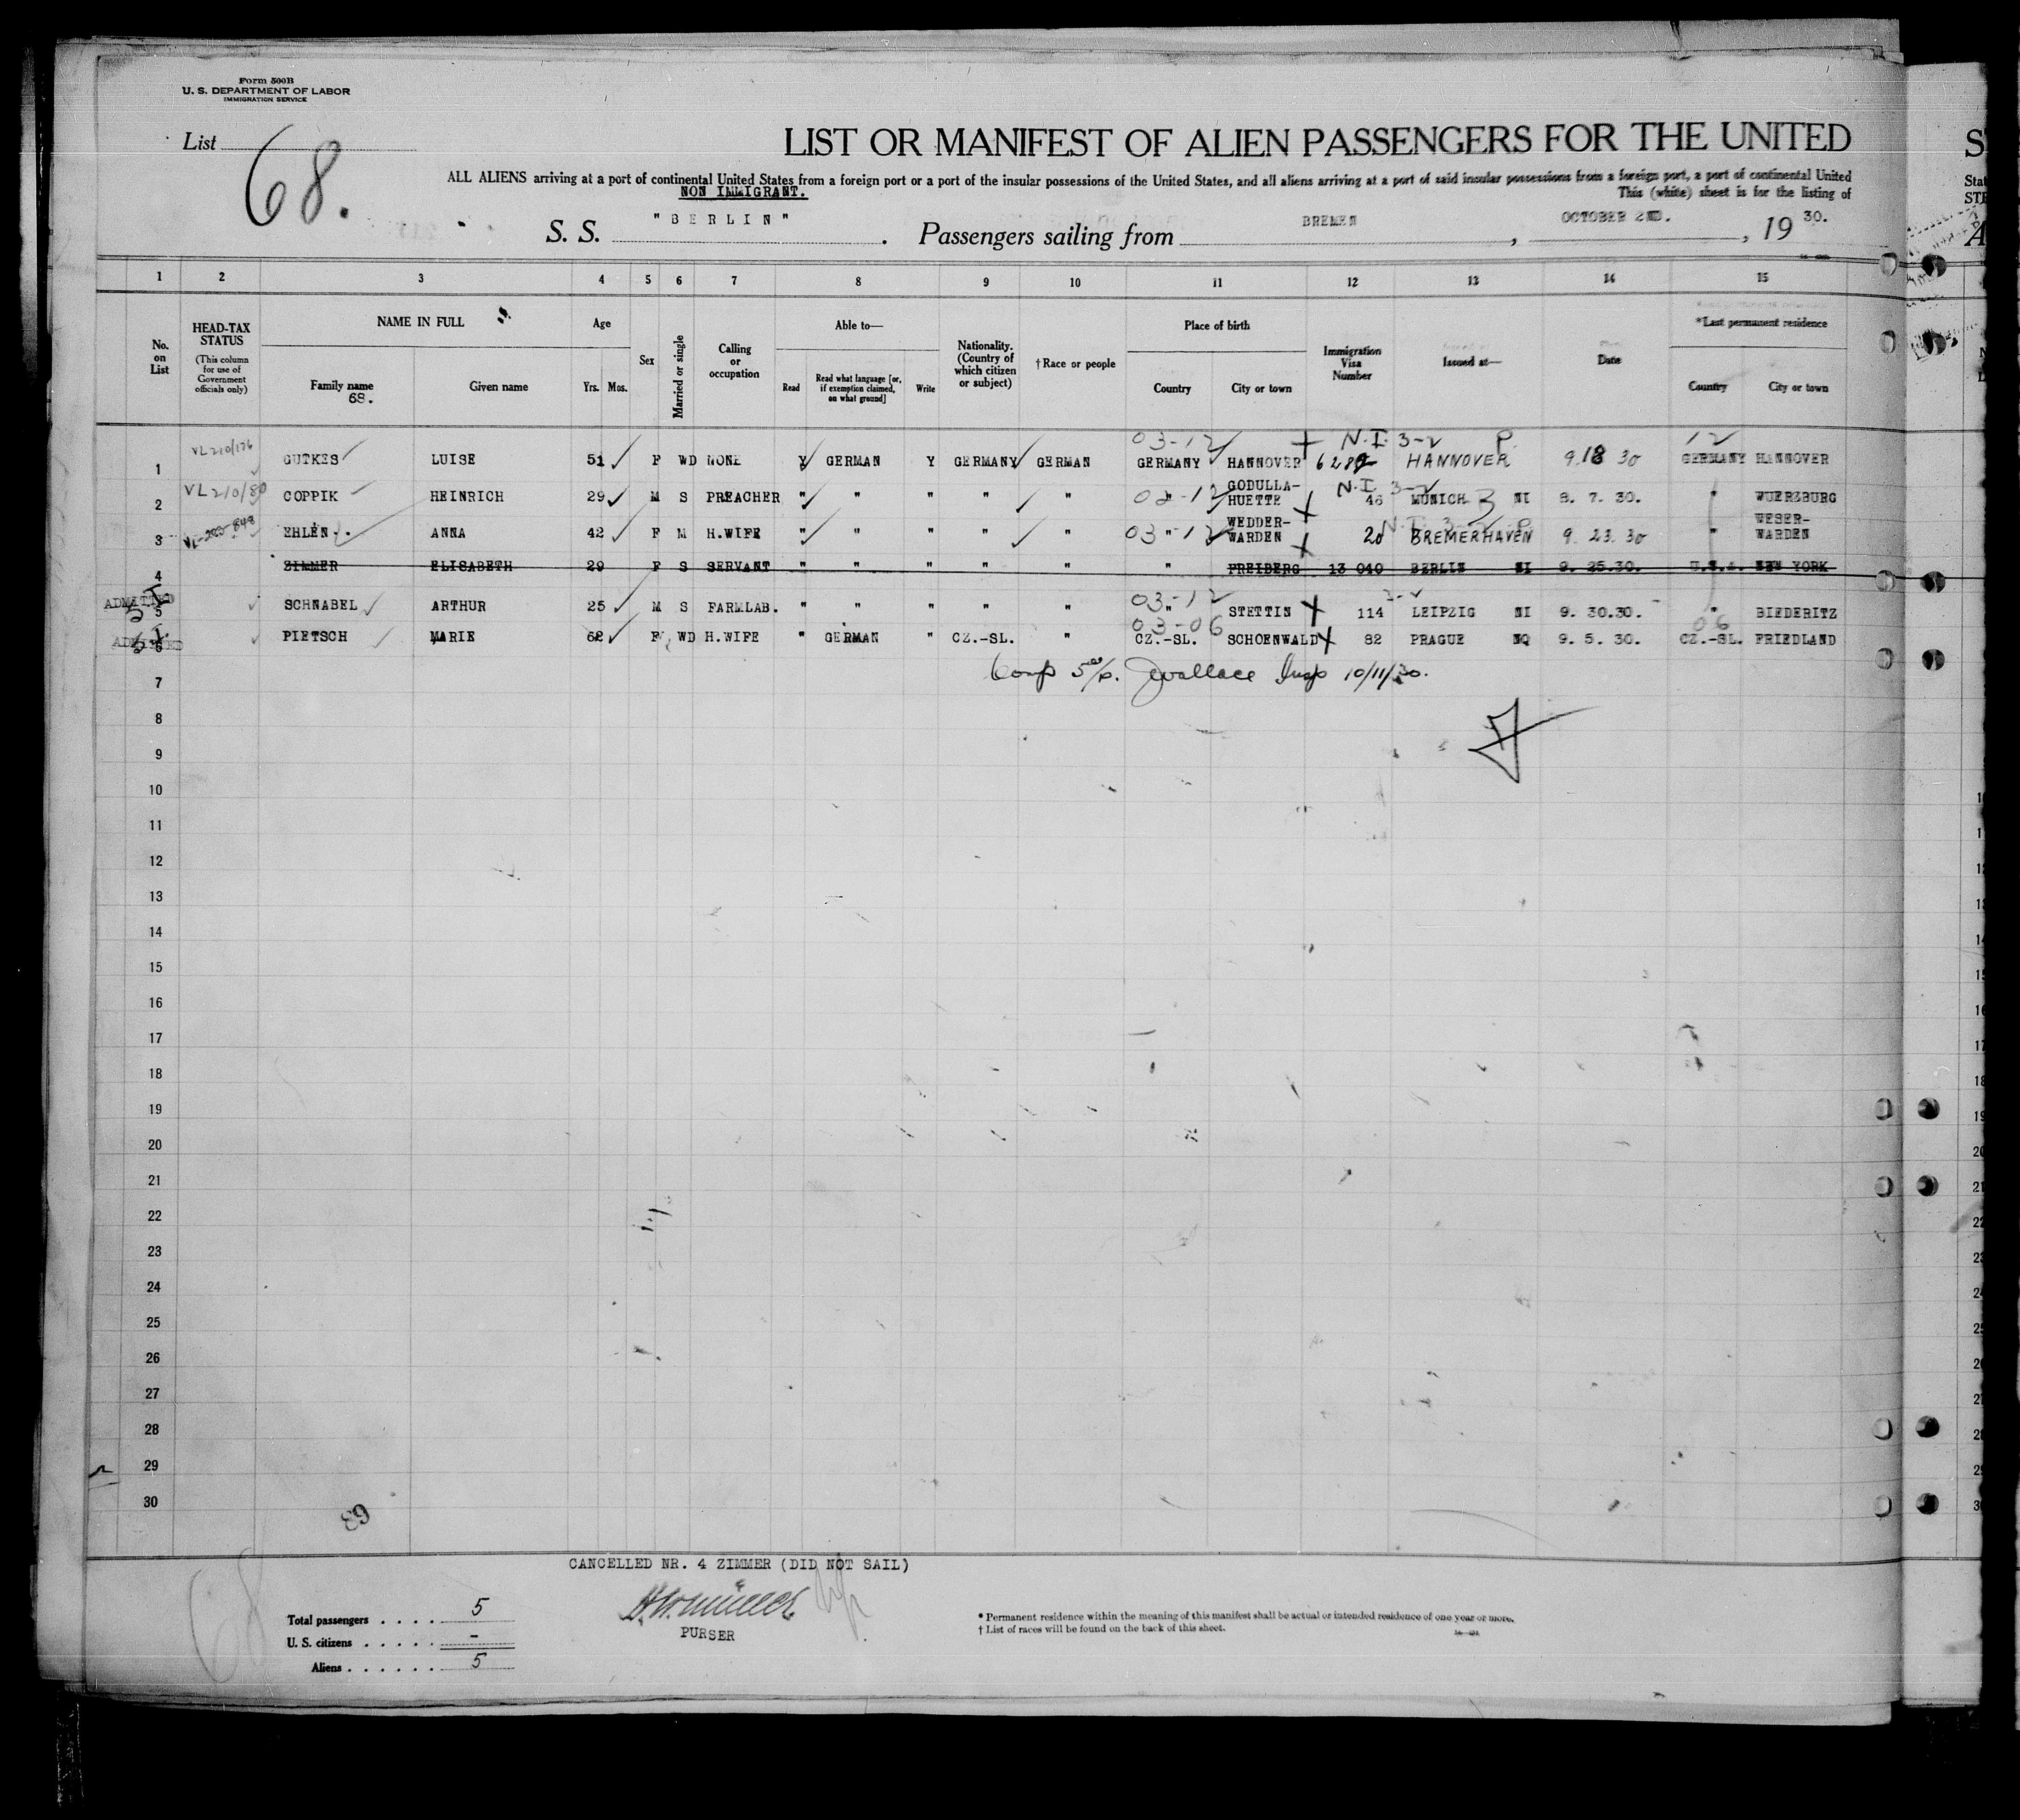 Form 500B
U. S. DEPARTMENT OF LABOR
IMMIGRATION SERVICE
List 68.
LIST OR MANIFEST OF ALIEN PASSENGERS FOR THE UNITED
ALL ALIENS arriving at a port of continental United States from a foreign port or a port of the insular possessions of the United States, and all aliens arriving at a port of said insular possessions from a foreign port, a port of continental United
NON IMMIGRANT.
This (white) sheet is for the listing of
S. S. "BERLIN". Passengers sailing from BREMEN, OCTOBER 2ND., 1930.
1 2 3 4 5 6 7 8 9 10 11 12 13 14 15
No. on List
HEAD-TAX STATUS
(This column for use of Government officials only)
NAME IN FULL
Family name
68.
Given name
Age
Yrs. Mos.
Sex
Married or single
Calling or occupation
Able to—
Read
Read what language [or, if exemption claimed, on what ground]
Write
Nationality. (Country of which citizen or subject)
†Race or people
Place of birth
Country
City or town
Immigration Visa Number
Issued at—
Date
*Last permanent residence
Country
City or town
03-12 N.I. 3-2 P. 12
1 VL210/176 GUTKES LUISE 51 F WD NONE Y GERMAN Y GERMANY GERMAN GERMANY HANNOVER HANNOVER 9.18 30 GERMANY HANNOVER
N.I. 3-2
2 VL210/80 COPPIK HEINRICH 29 M S PREACHER " " " " " 03-12 " GODULLA-HUETTE 46 MUNICH NI 8. 7. 30. " WUERZBURG
3 EHLEN ANNA 42 F M H.WIFE " " " " " 03-12 " WEDDER-WARDEN 20 BREMERHAVEN 9. 23. 30 " WESER-WARDEN
4 ZIMMER ELISABETH 29 F S SERVANT " " " " " " FREIBERG 13 040 BERLIN NI 9. 25.30. U.S.A. NEW YORK
03-12
ADMITTED 5 SCHNABEL ARTHUR 25 M S FARMLAB. " " " " " " STETTIN 114 LEIPZIG NI 9. 30.30. " BIEDERITZ
03-06 06
ADMITTED 6 PIETSCH MARIE 62 F WD H.WIFE " GERMAN " CZ.-SL. " CZ.-SL. SCHOENWALD 82 PRAGUE NQ 9. 5. 30. CZ.-SL. FRIEDLAND
7 Wallace Insp 10/11/30.
8
9
10
11
12
13
14
15
16
17
18
19
20
21
22
23
24
25
26
27
28
29
30
68
CANCELLED NR. 4 ZIMMER (DID NOT SAIL)
Total passengers . . . . 5
U. S. citizens . . . . . -
Aliens . . . . . . 5
PURSER
* Permanent residence within the meaning of this manifest shall be actual or intended residence of one year or more.
† List of races will be found on the back of this sheet.
68